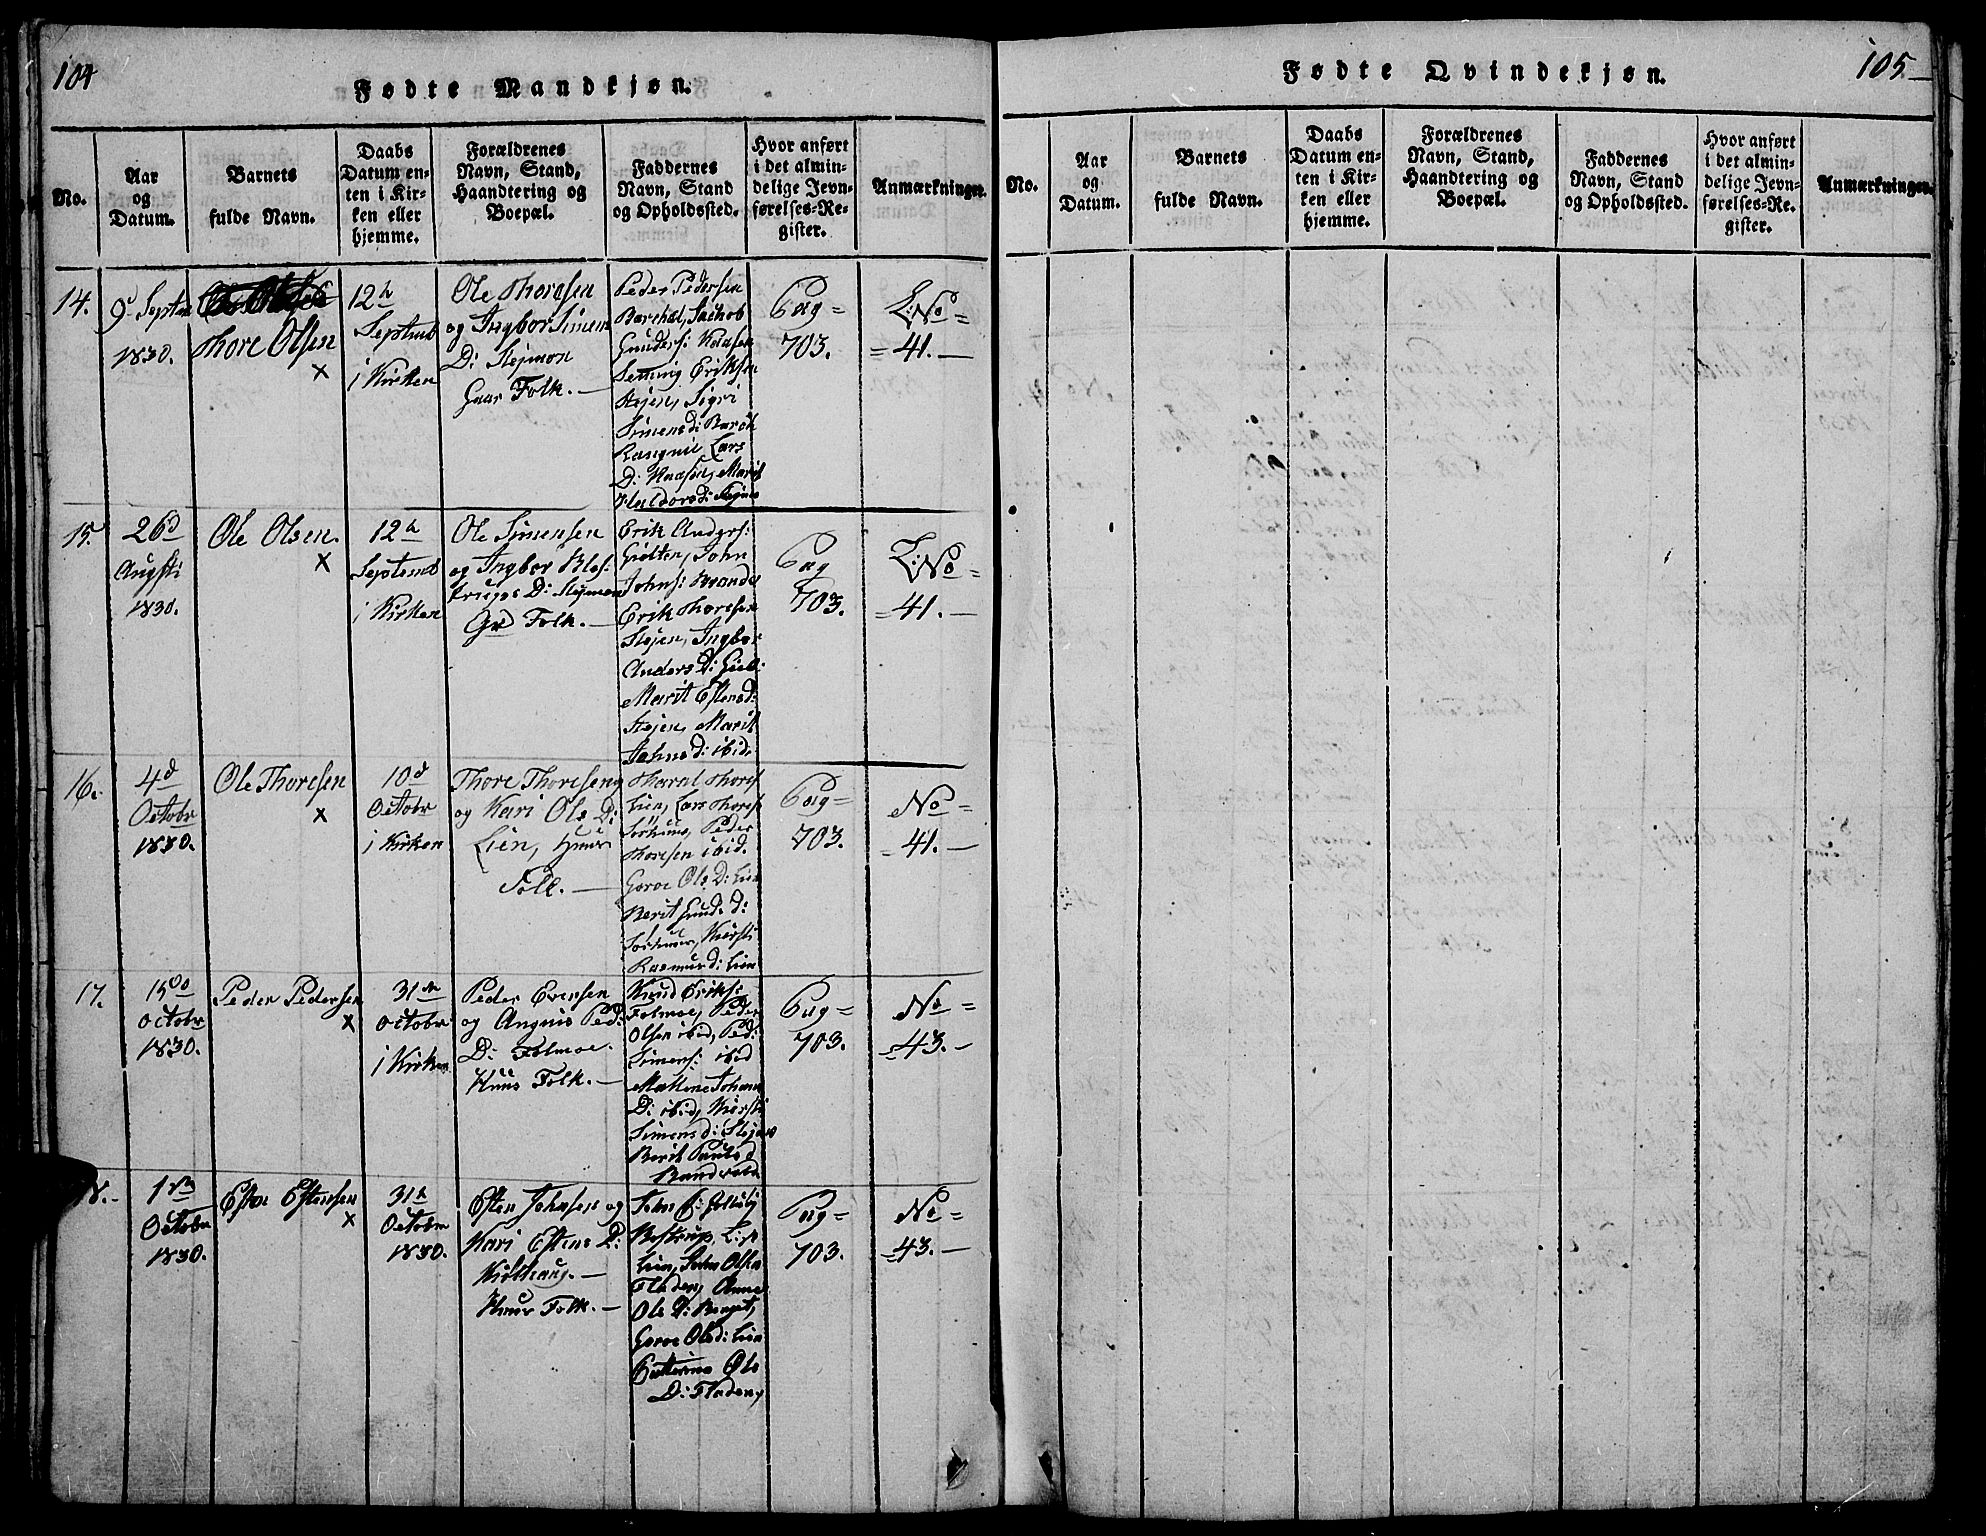 104
Fødte Mandkjøn.
No.
Aar og Datum.
Barnets fulde Navn.
Daabs Datum enten i Kirken eller hjemme.
Forældrenes Navn, Stand, Haandtering og Boepæl.
Faddernes Navn, Stand og Opholdssted.
Hvor anført i det almindelige Jevnførelses-Register.
Anmærkninger.
14.
9d Septem
1830.
Thore Olsen
x
12te
Septemb
i Kirken
Ole Thoresen
og Ingbor Simens
D: Stejmon
Gaar Folk.
Peder Pedersen
Jachob
Gunders:
Eriksen
Stejen, Sigri
Simensd:
Rangnil Lars
D: Marit
Haldorsd:
Pag=
703.
L: No=
=41.
15.
26d
Augsti
1830.
Ole Olsen
x
12te
Septemb
i Kirken
Ole Simensen
og Ingbor
D: Stejmon
Gr Folk.
Erik Anders:
John
Johns:
Erik Thoresen
Stejen, Ingbor
Anders D:
Marit Estensd:
Stejen, Marit
Johnsd: ibid:
Pag
703.
L: No=
=41.
16.
4d
Octobr
1830.
Ole Thoresen
x
10d
Octobr
i Kirken
Thore Thoresen
og Kari Ols D:
Lien, Huus
Folk.
Lien, Lars Thores
Peder
Thoresen ibid.
Goroe Ols D: Lien
Berit Gund: d:
Kiersti
Rasmusd: Lien
Pag=
703.
No=
=41.
17.
15d
Octobr
1830.
Peder Pedersen
x
31te
Octobr
i Kirken
Peder Evensen
og Angnis Ped:
D: Folmoe.
Huus Folk.
Knud Eriks:
Folmoe, Peder
Olsen ibid, Ped:
Simens: ibid
Johann
D: ibid, Kiersti
Simensd: Stejen
Berit Pauls d
Pag=
703.
No=
=43.
18.
1ste
Octobr
1830.
Esten Estensen
x
31te
Octobr
1830.
Esten Johnsen og
Kari Estens D:
Huus Folk.
John
Lien, John Olsen
Fladen, Anne
Ols D:
Goroe Olsd: Lien
Ols
D: Fladen,
Pag=
703.
No=
=43.
105
Fødte Qvindekjøn.
No.
Aar og Datum.
Barnets fulde Navn.
Daabs Datum enten i Kirken eller hjemme.
Forældrenes Navn, Stand, Haandtering og Boepæl.
Faddernes Navn, Stand og Opholdssted.
Hvor anført i det almindelige Jevnførelses-Register.
Anmærkninger.